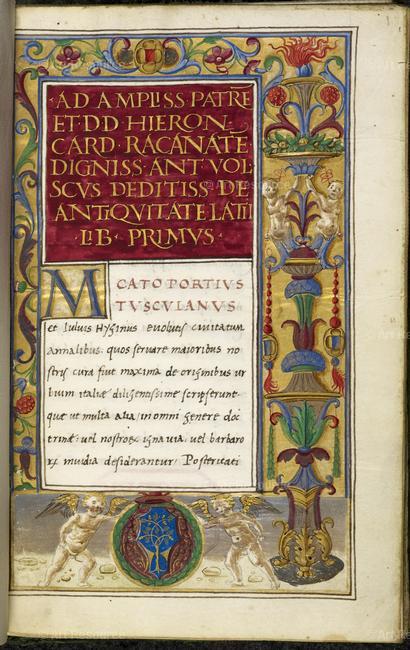 ·AD AMPLISS·PATRĒ
ET·DD·HIERON·
CARD·RACANATĒ
DIGNISS·ANT·VOL·
SCVS DEDITISS·DE
ANTIQVITATE LATII
·LIB· PRIMVS·
M CATO PORTIVS
TVSCVLANVS
et Iulius Hyginus euolutis ciuitatum
annalibus: quos seruare maioribus no
stris cura fuit maxima de originibus ur
bium italiae diligentissime scripserunt·
quae ut multa alia, in omni genere doc
trinae: uel nostrorum ignauia, uel barbaro
rum inuidia desiderantur: Posteritati